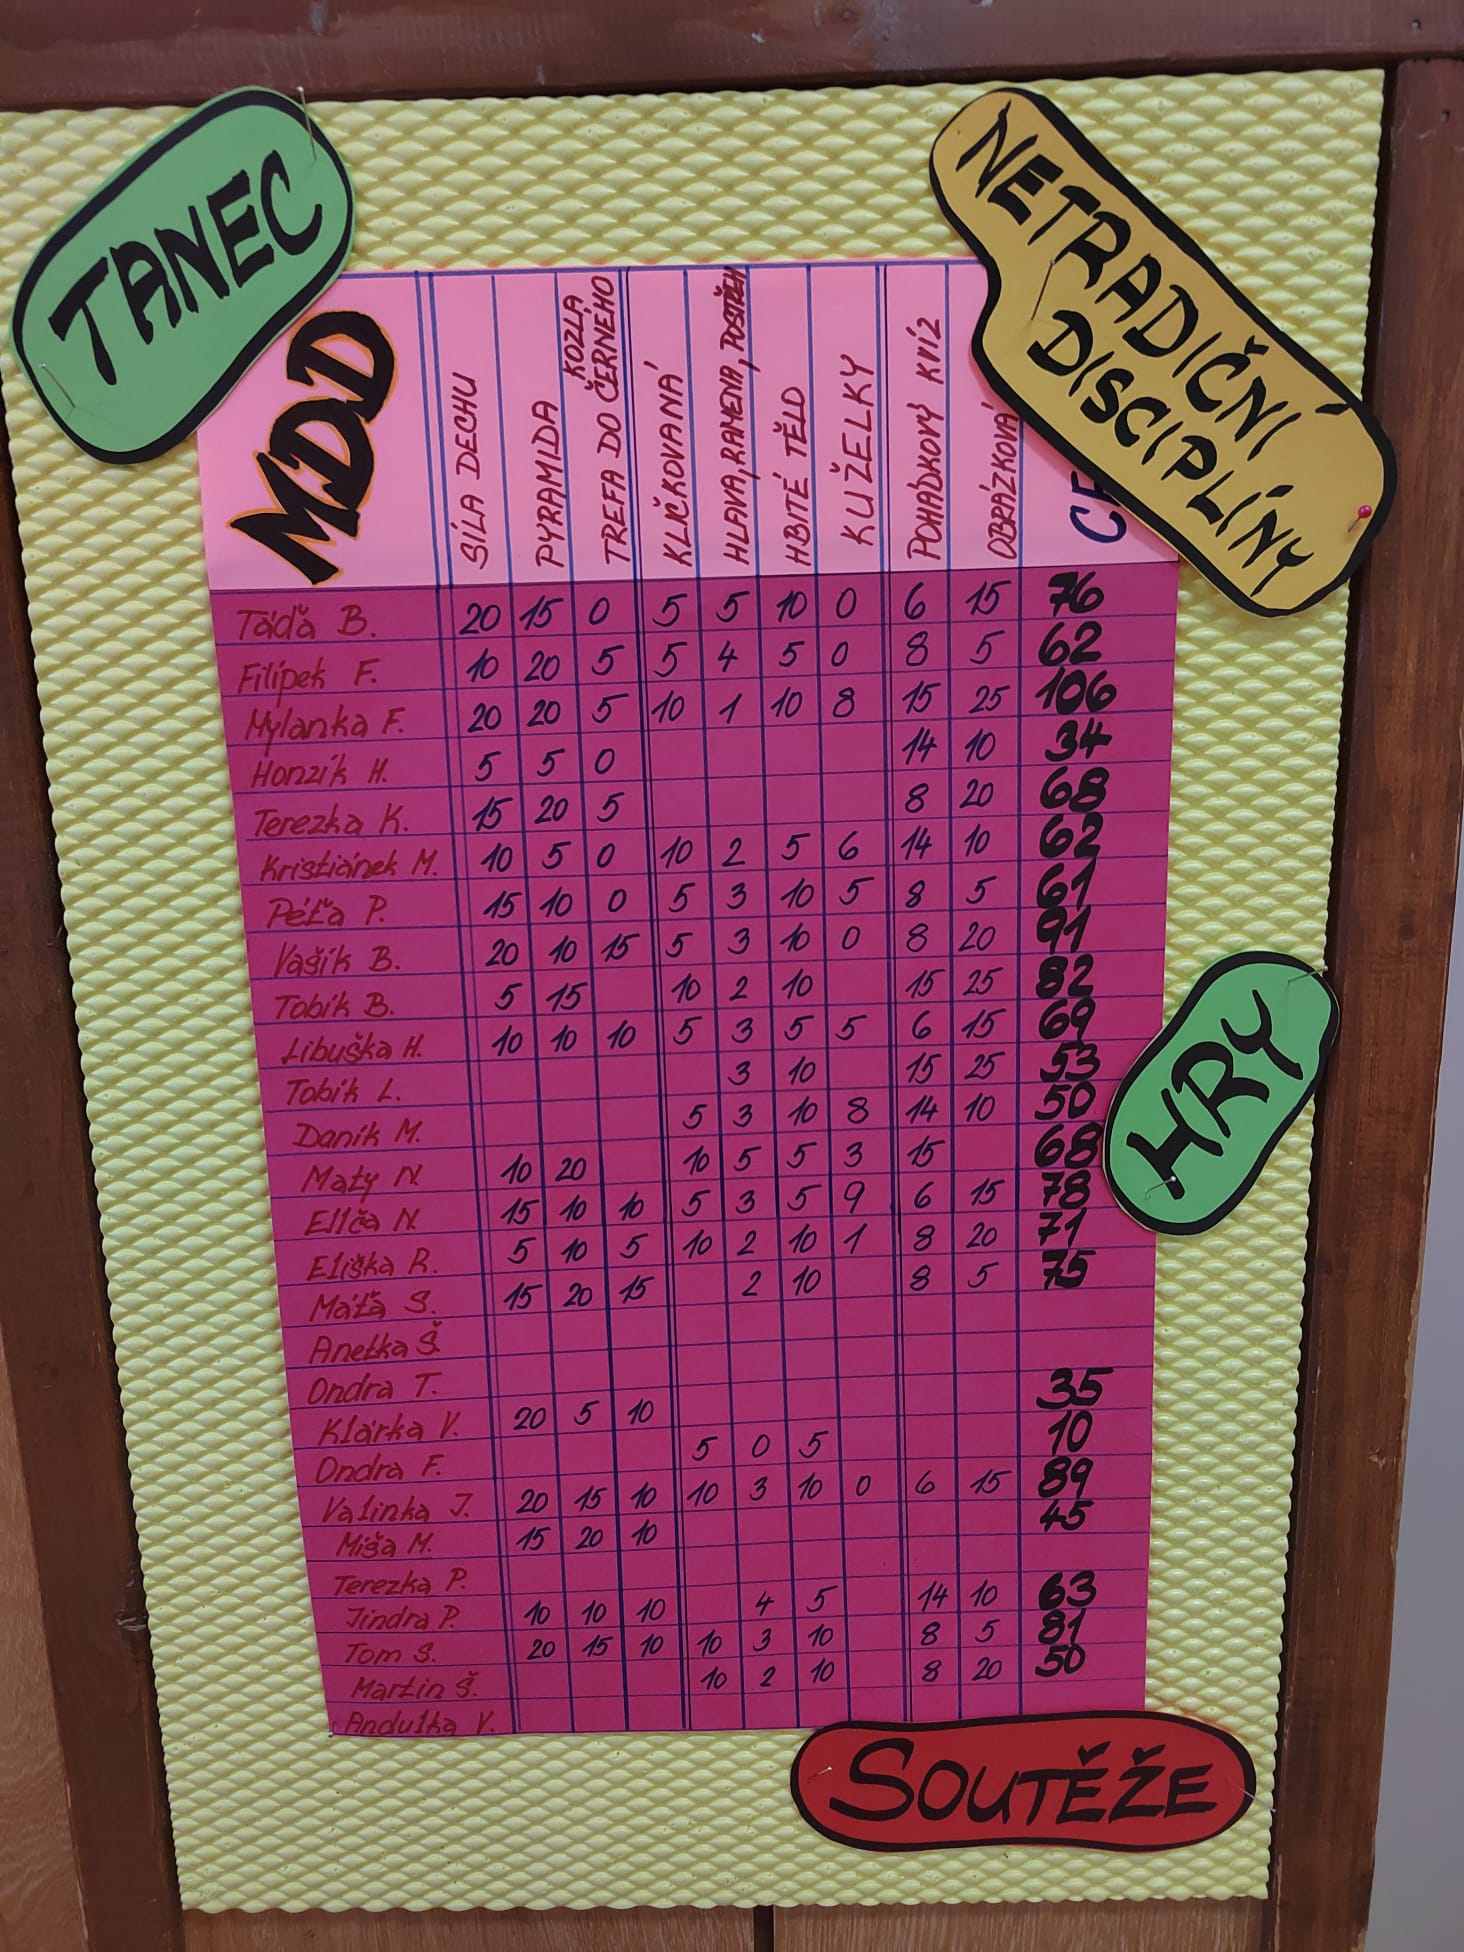 TANEC
NETRADIČNÍ
DISCIPLÍNY
MDD
SÍLA DECHU
PYRAMIDA
TREFA DO ČERNÉHO
KOZLA
KLIČKOVANÁ
HLAVA, RAMENA, POSTŘEH
HBITÉ TĚLO
KUŽELKY
POHÁDKOVÝ KVÍZ
OBRÁZKOVÁ
Táďa B. 20 15 0 5 5 10 0 6 15 76
Filípek F. 10 20 5 5 4 5 0 8 5 62
Mylanka F. 20 20 5 10 1 10 8 15 25 106
Honzík H. 5 5 0 14 10 34
Terezka K. 15 20 5 8 20 68
Kristiánek M. 10 5 0 10 2 5 6 14 10 62
Péťa P. 15 10 0 5 3 10 5 8 5 61
Vašík B. 20 10 15 5 3 10 0 8 20 91
Tobík B. 5 15 10 2 10 15 25 82
Libuška H. 10 10 10 5 3 5 5 6 15 69
Tobík L. 3 10 15 25 53
Daník M. 5 3 10 8 14 10 50
Maty N. 10 20 10 5 5 3 15 68
Elíča N. 15 10 10 5 3 5 9 6 15 78
Eliška R. 5 10 5 10 2 10 1 8 20 71
Máťa S. 15 20 15 2 10 8 5 75
Anetka Š.
Ondra T.
Klárka V. 20 5 10 35
Ondra F. 5 0 5 10
Valinka J. 20 15 10 10 3 10 0 6 15 89
Míša M. 15 20 10 45
Terezka P.
Jindra P. 10 10 10 4 5 14 10 63
Tom S. 20 15 10 10 3 10 8 5 81
Martin Š. 10 2 10 8 20 50
Andulka V.
HRY
SOUTĚŽE